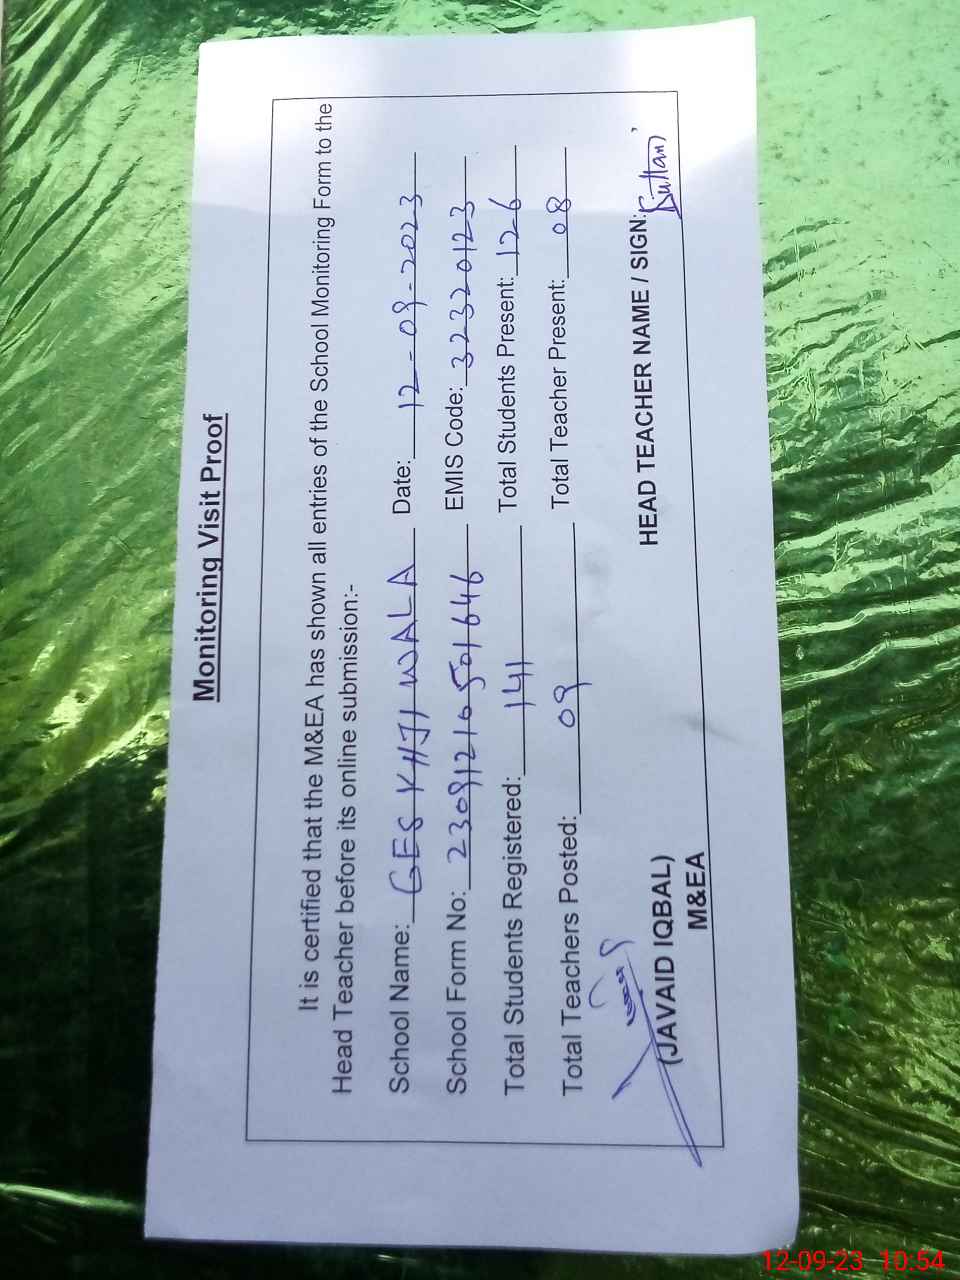 Monitoring Visit Proof
It is certified that the M&EA has shown all entries of the School Monitoring Form to the
Head Teacher before its online submission:-
School Name: GES KHJI WALA Date: 12-09-2023
School Form No: 23091210501646 EMIS Code: 32320123
Total Students Registered: 141 Total Students Present: 126
Total Teachers Posted: 09 Total Teacher Present: 08
(JAVAID IQBAL) HEAD TEACHER NAME / SIGN:
M&EA
12-09-23 10:54